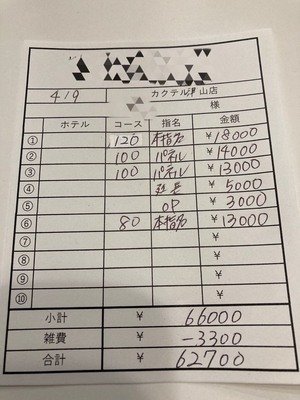 4/9 カクテル津山店
様
ホテル コース 指名 金額
① 120 本指名 ¥18000
② 100 パネル ¥14000
③ 100 パネル ¥13000
④ 延長 ¥5000
⑤ OP ¥3000
⑥ 80 本指名 ¥13000
⑦ ¥
⑧ ¥
⑨ ¥
⑩ ¥
小計 ¥ 66000
雑費 ¥ -3300
合計 ¥ 62700